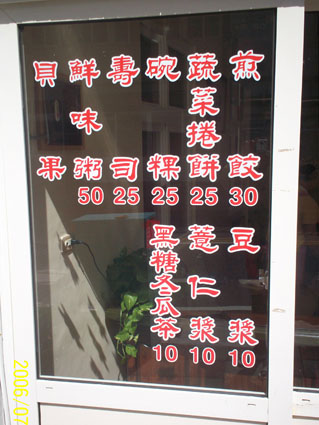 煎餃30
蔬菜捲餅25
碗粿25
壽司25
鮮味粥50
貝果
豆漿10
薏仁漿10
黑糖冬瓜茶10
2006/07